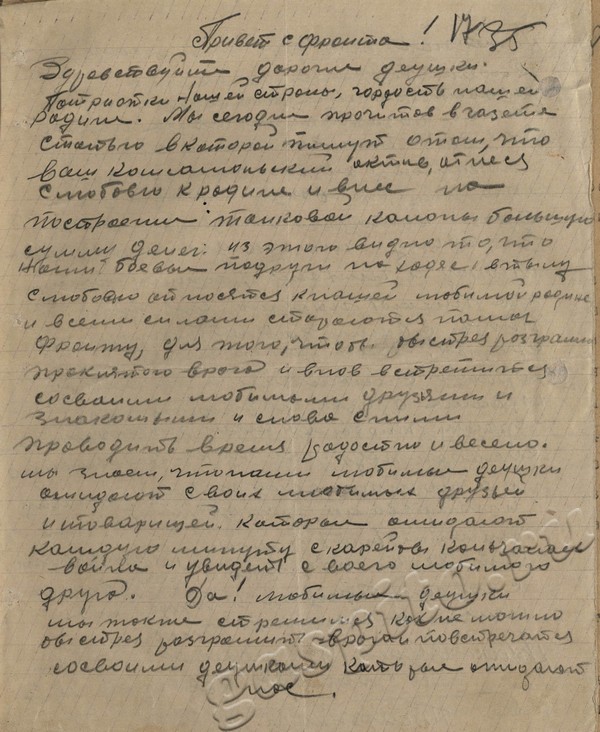 Привет с фронта! 1735
Здравствуйте дорогие деушки.
Патриотки нашей страны, гордость нашей
Родины. Мы сегодня прочитов в газете
статью в которой пишут о том, что
ваш комсамольский актив, отнеся
с любовью к родине и внес на
построении танковой калоны большую
сумму денег. из этого видно то, что
наши боевые подруги находяс в тылу
с любовью относятся к нашей любимой родине
и всеми силами стараются помоч
фронту, для того, чтобы быстрея розгромит
проклятого врага и внов встретится
со своими любимыми друзьями и
знакомыми и снова с ними
проводить время радостно и весело.
мы знаем, что наши любимые деушки
ожидают своих любимых друзей
и товарищей. которые ожидают
каждую минуту скарейбы кончалась
война и увидет своего любимого
друга. Да! любимые деушки
мы также стремимся как можно
быстрея розгромить врага и повстречатся
со своими деушками которые ожидают
нас.